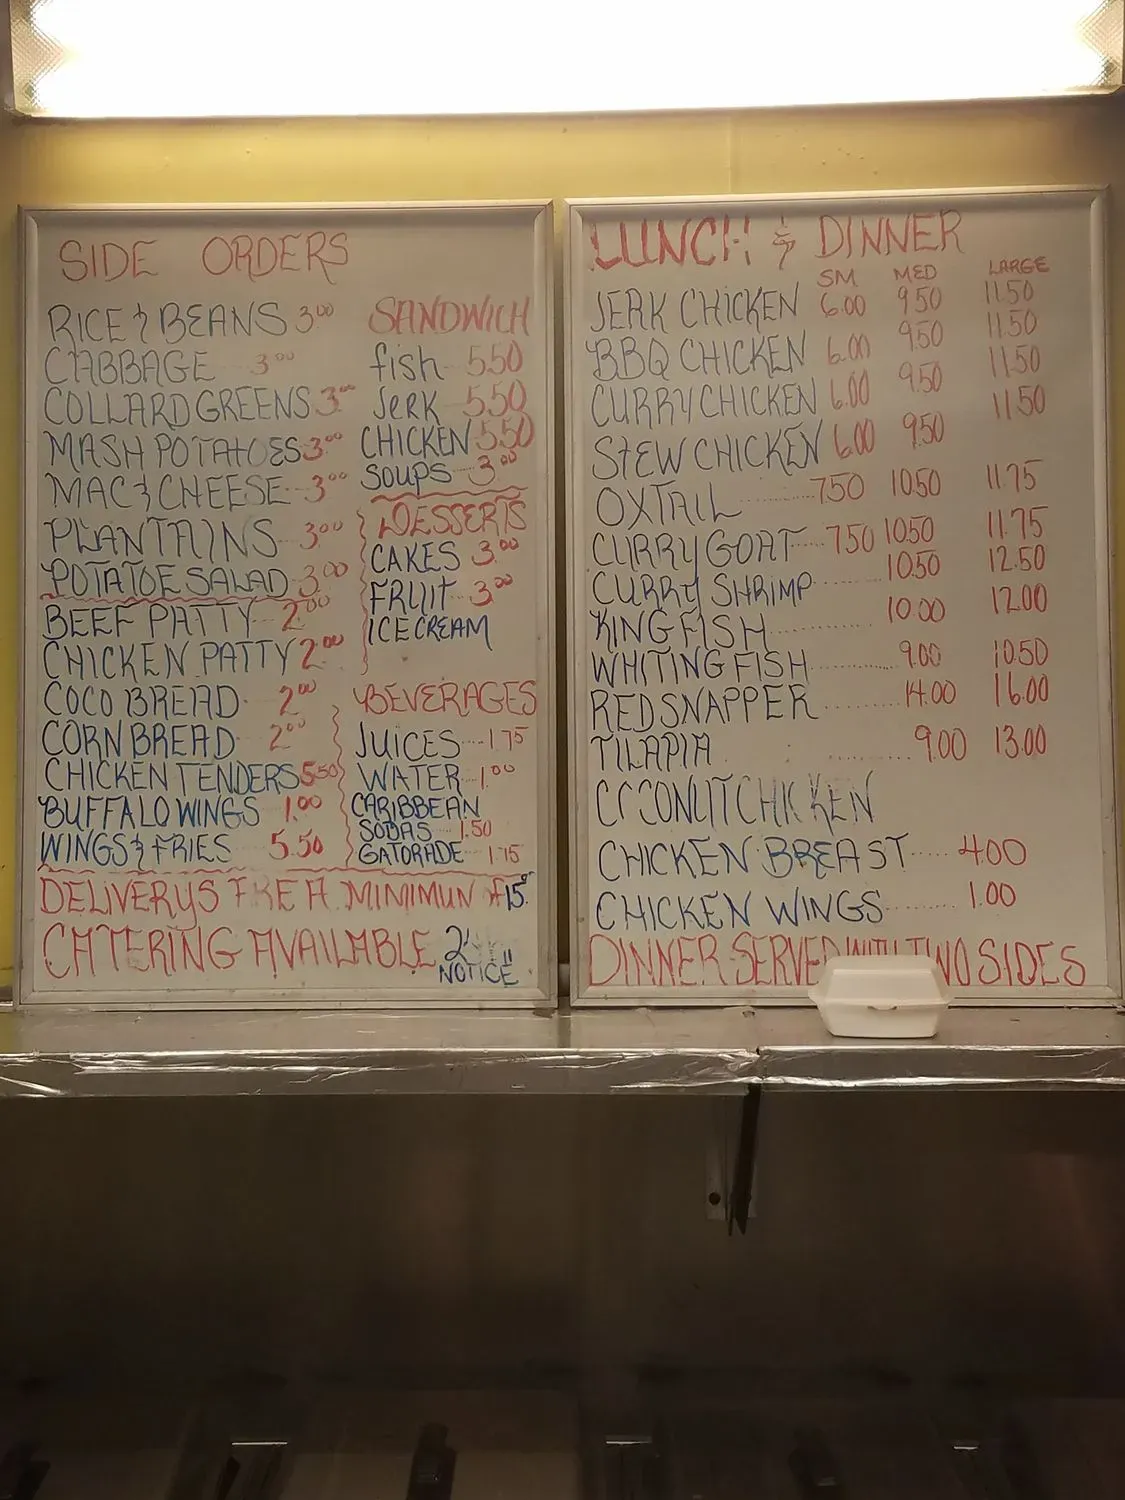 SIDE ORDERS
RICE & BEANS 3.00
CABBAGE 3.00
COLLARD GREENS 3.00
MASH POTATOES 3.00
MAC & CHEESE 3.00
PLANTAINS 3.00
POTATOE SALAD 3.00
BEEF PATTY 2.00
CHICKEN PATTY 2.00
COCO BREAD 2.00
CORN BREAD 2.00
CHICKEN TENDERS 5.50
BUFFALO WINGS 1.00
WINGS & FRIES 5.50
SANDWICH
fish 5.50
JERK 5.50
CHICKEN 5.50
SOUPS 3.00
DESSERTS
CAKES 3.00
FRUIT 3.00
ICE CREAM
BEVERAGES
JUICES 1.75
WATER 1.00
CARIBBEAN
SODAS 1.50
GATORADE 1.75
DELIVERYS FREE A MINIMUN OF 15
CATERING AVAILABLE 2
NOTICE
LUNCH & DINNER
SM MED LARGE
JERK CHICKEN 6.00 9.50 11.50
BBQ CHICKEN 6.00 9.50 11.50
CURRY CHICKEN 6.00 9.50 11.50
STEW CHICKEN 6.00 9.50 11.50
OXTAIL 7.50 10.50 11.75
CURRY GOAT 7.50 10.50 11.75
CURRY SHRIMP 10.50 12.50
KING FISH 10.00 12.00
WHITING FISH 9.00 10.50
RED SNAPPER 14.00 16.00
TILAPIA 9.00 13.00
COCONUT CHICKEN
CHICKEN BREAST 4.00
CHICKEN WINGS 1.00
DINNER SERVED WITH TWO SIDES